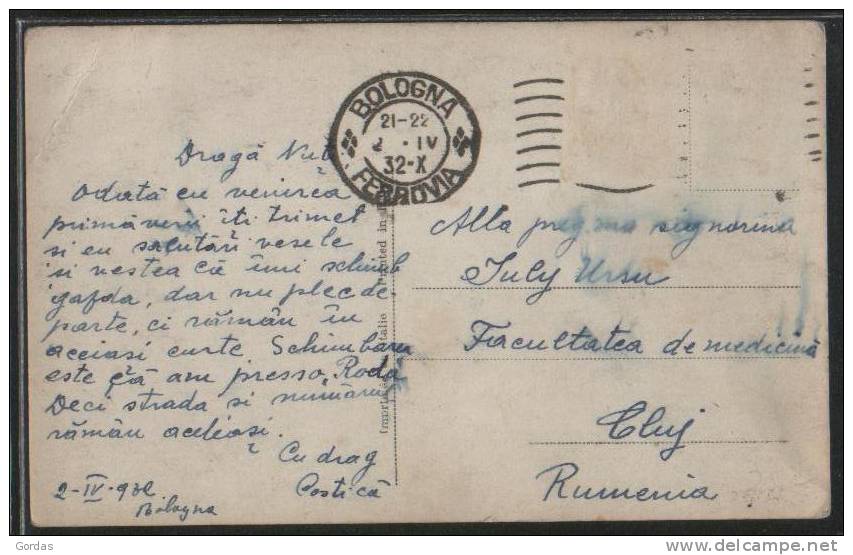 BOLOGNA
21-22
2 · IV
32-X
FERROVIA
Dragă
Odată cu venirea
primăverii îti trimet
si eu salutări vesele
si vestea că îmi schimb
gazda, dar nu plec de-
parte, ci rămân în
aceiasi curte Schimbarea
este că am presso, Roda
Deci strada si numărul
rămân aceleasi.
Cu drag
Costică
2-IV-932
Bologna
Printed in
Italie
Alla signorina
July Ursu
Facultatea de medicină
Cluj
Rumenia
Gordas
www.delcampe.net